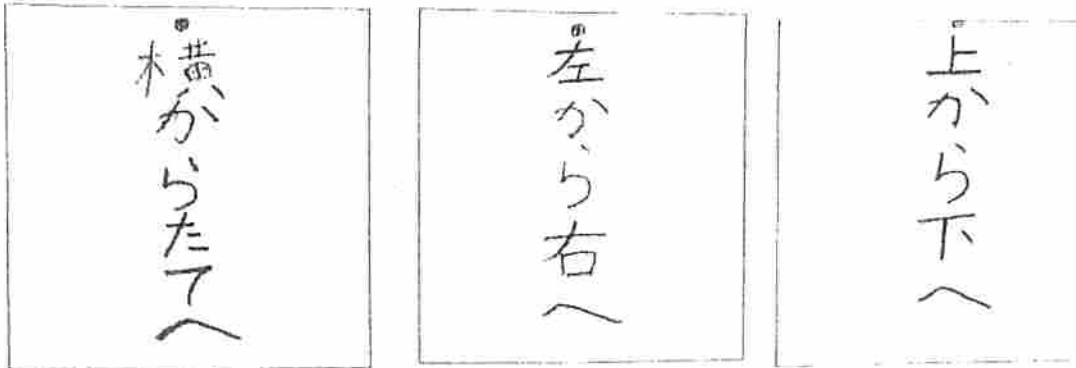 上から下へ
左から右へ
横からたてへ